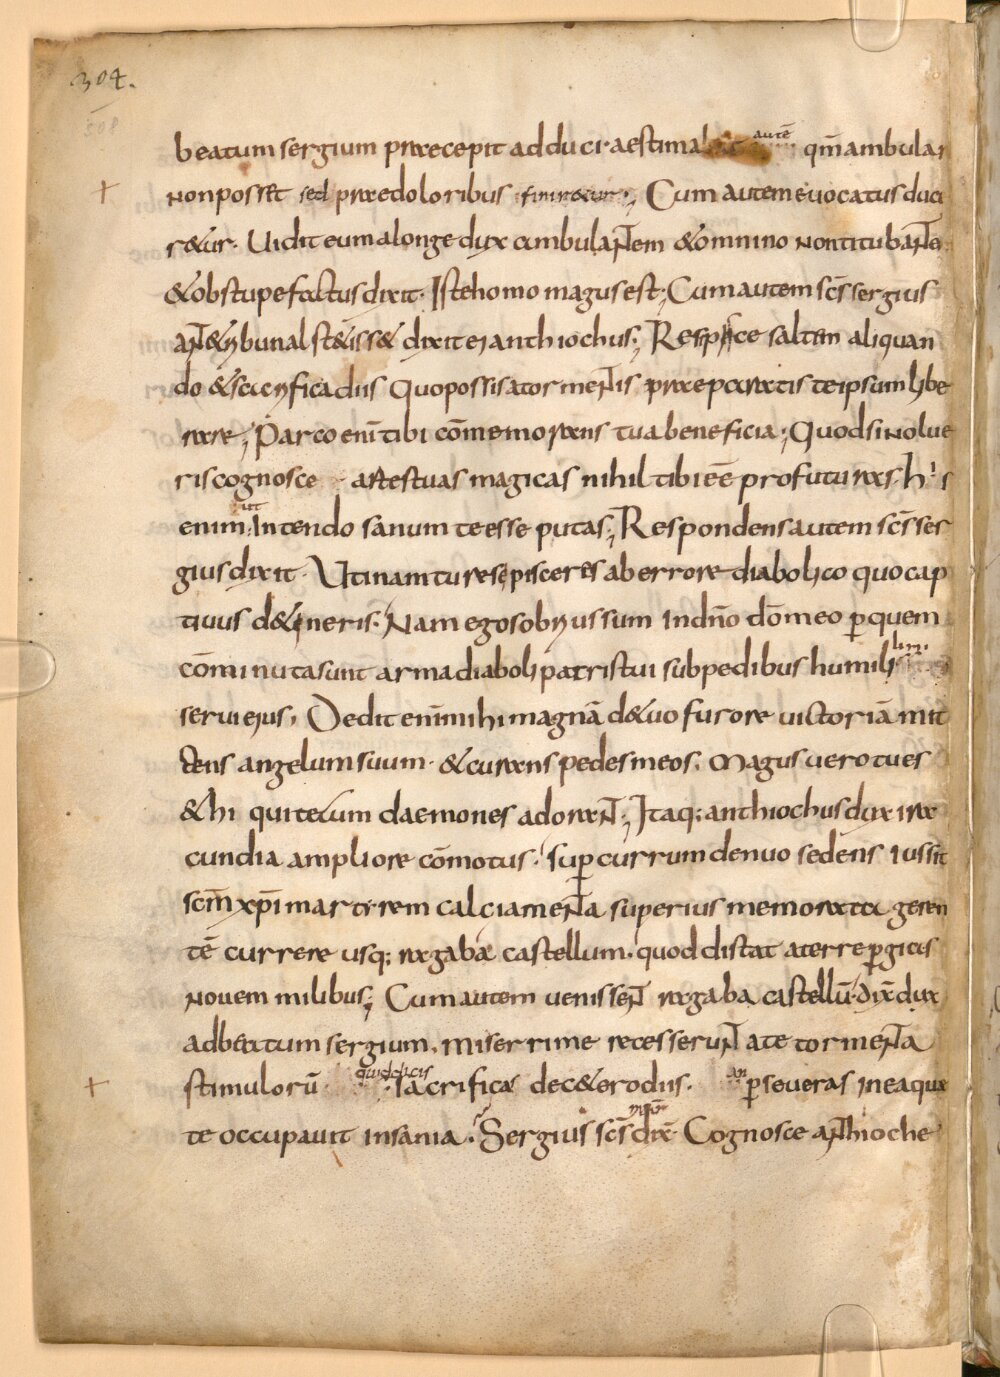 304.
308
beatum sergium praecepit adduci· aestimabat autē qm̄ ambular
non posset sed prae doloribus finiretur·, Cum autem euocatus duce
r&ur· Uidit eum alonge dux ambulantem & omnino non titubante
& obstupefactus dixit· Iste homo magus est; Cum autem scs̄ sergius
ante tribunal st&iss& dixit ei anthiochus; Respice saltem aliquan
do & sacrifica diis Quo possis a tormentis praeparatis te ipsum libe
rare; Parco enī tibi cōmemorans tua beneficia; Quod si nolue
ris cognosce artes tuas magicas nihil tibi eē profuturas· his
enim ut Intendo sanum te esse putas; Respondens autem scs̄ ser
gius dixit· Utinam tu resepisceres ab errore diabolico quo cap
tiuus d&ineris· Nam ego sobrius sum In dn̄o dō meo p̱ quem
cōminuta sunt arma diaboli patris tui sub pedibus humil lim·
serui eius, Dedit enī mihi magnā d&uo furore uictoriā mit
tens angelum suum· & curans pedes meos. Magus uero tu es
& hi qui tecum daemones adorant; Itaq; anthiochus dux ira
cundia ampliore cōmotus· sup̱ currum denuo sedens iussit
scm̄ xp̄i martirem calciamenta superius memorata geren
tē currere usq; rasgabae castellum· quod distat a terrep̱gitis
nouem milibus; Cum autem uenissent rasgaba castellū· dix̄ dux
ad beatum sergium, Miserrime recesserunt a te tormenta
stimulorū quid dicis sacrificae dec&ero diis· an p̱seueras in ea quae
te occupauit insania· Sergius scs̄ dix̄ Cognosce anthioche